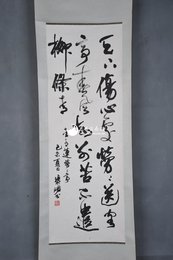 天下傷心處勞勞送客
亭春風知別苦不遣
柳條青